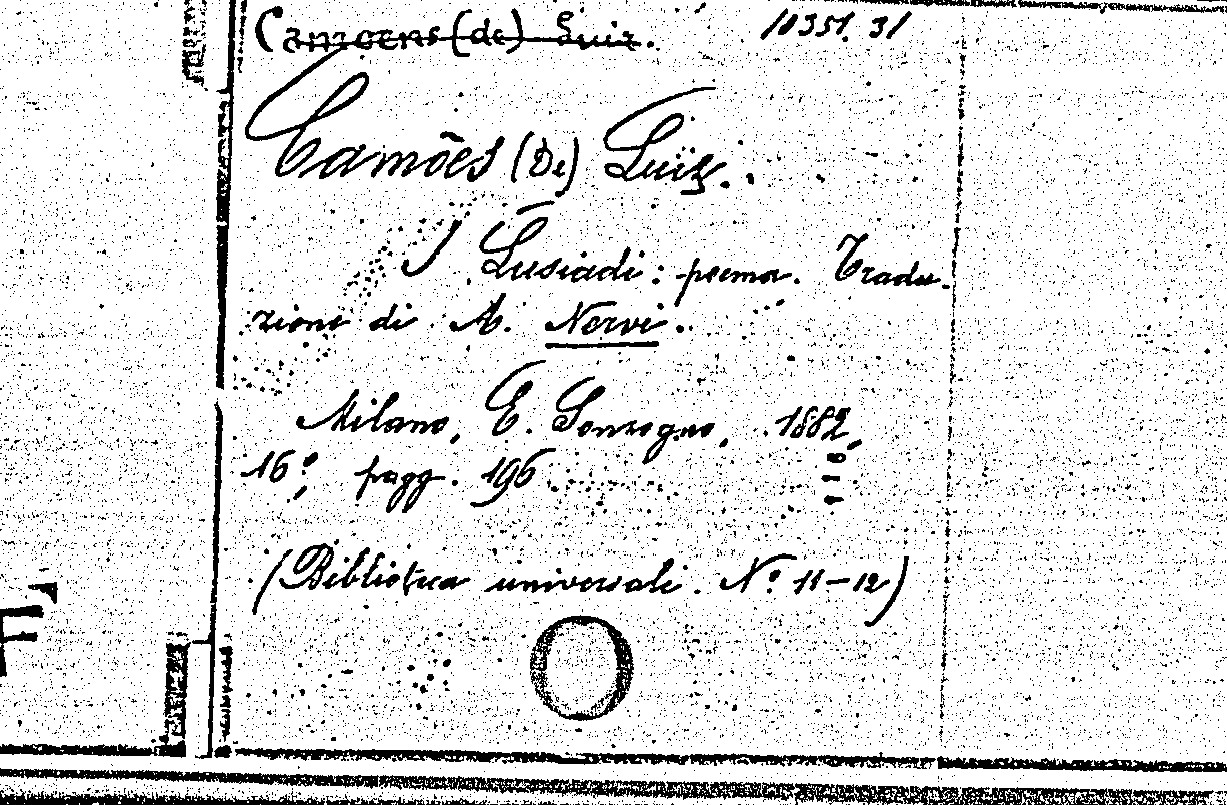 Camoens (de) Luiz. 10351. 31
Camões (De) Luiz.
I Lusiadi: poema. Tradu-
zione di A. Nervi.
Milano, E. Sonzogno, 1882,
16º, pagg. 196
(Biblioteca universale. Nº 11-12)
F